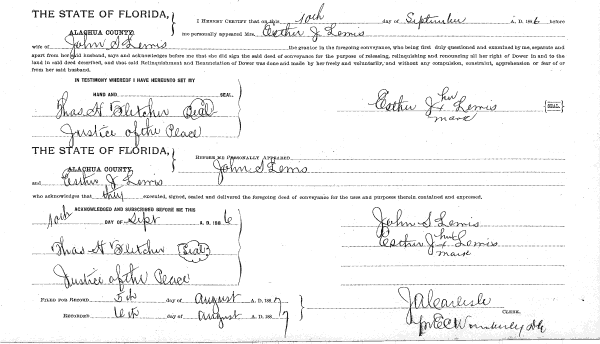 THE STATE OF FLORIDA,
ALACHUA COUNTY.
I HEREBY CERTIFY that on this 10th day of September A. D. 1886 before
me personally appeared Mrs. Esther J Lewis
wife of John S Lewis the grantor in the foregoing conveyance, who being first duly questioned and examined by me, separate and
apart from her said husband, says and acknowledges before me that she did sign the said deed of conveyance for the purpose of releasing, relinquishing and renouncing all her right of Dower in and to the
land in said deed described, and that said Relinquishment and Renunciation of Dower was done and made by her freely and voluntarily, and without any compulsion, constraint, apprehension or fear of or
from her said husband.
IN TESTIMONY WHEREOF I HAVE HEREUNTO SET MY
HAND AND SEAL.
Thas H Fletcher Seal
Justice of the Peace
her
Esther J x Lewis SEAL.
mark
THE STATE OF FLORIDA,
ALACHUA COUNTY.
BEFORE ME PERSONALLY APPEARED John S Lewis
and Esther J Lewis
who acknowledges that they executed, signed, sealed and delivered the foregoing deed of conveyance for the uses and purposes therein contained and expressed.
ACKNOWLEDGED AND SUBSCRIBED BEFORE ME THIS
10th DAY OF Sept A. D. 1886
Thas H Fletcher Seal
Justice of the Peace
John S Lewis
her
Esther J x Lewis
mark
FILED FOR RECORD 5th day of August A. D. 1887
RECORDED 6th day of August A. D. 1887
J A Carlisle
CLERK.
pr E C Wimberly D C